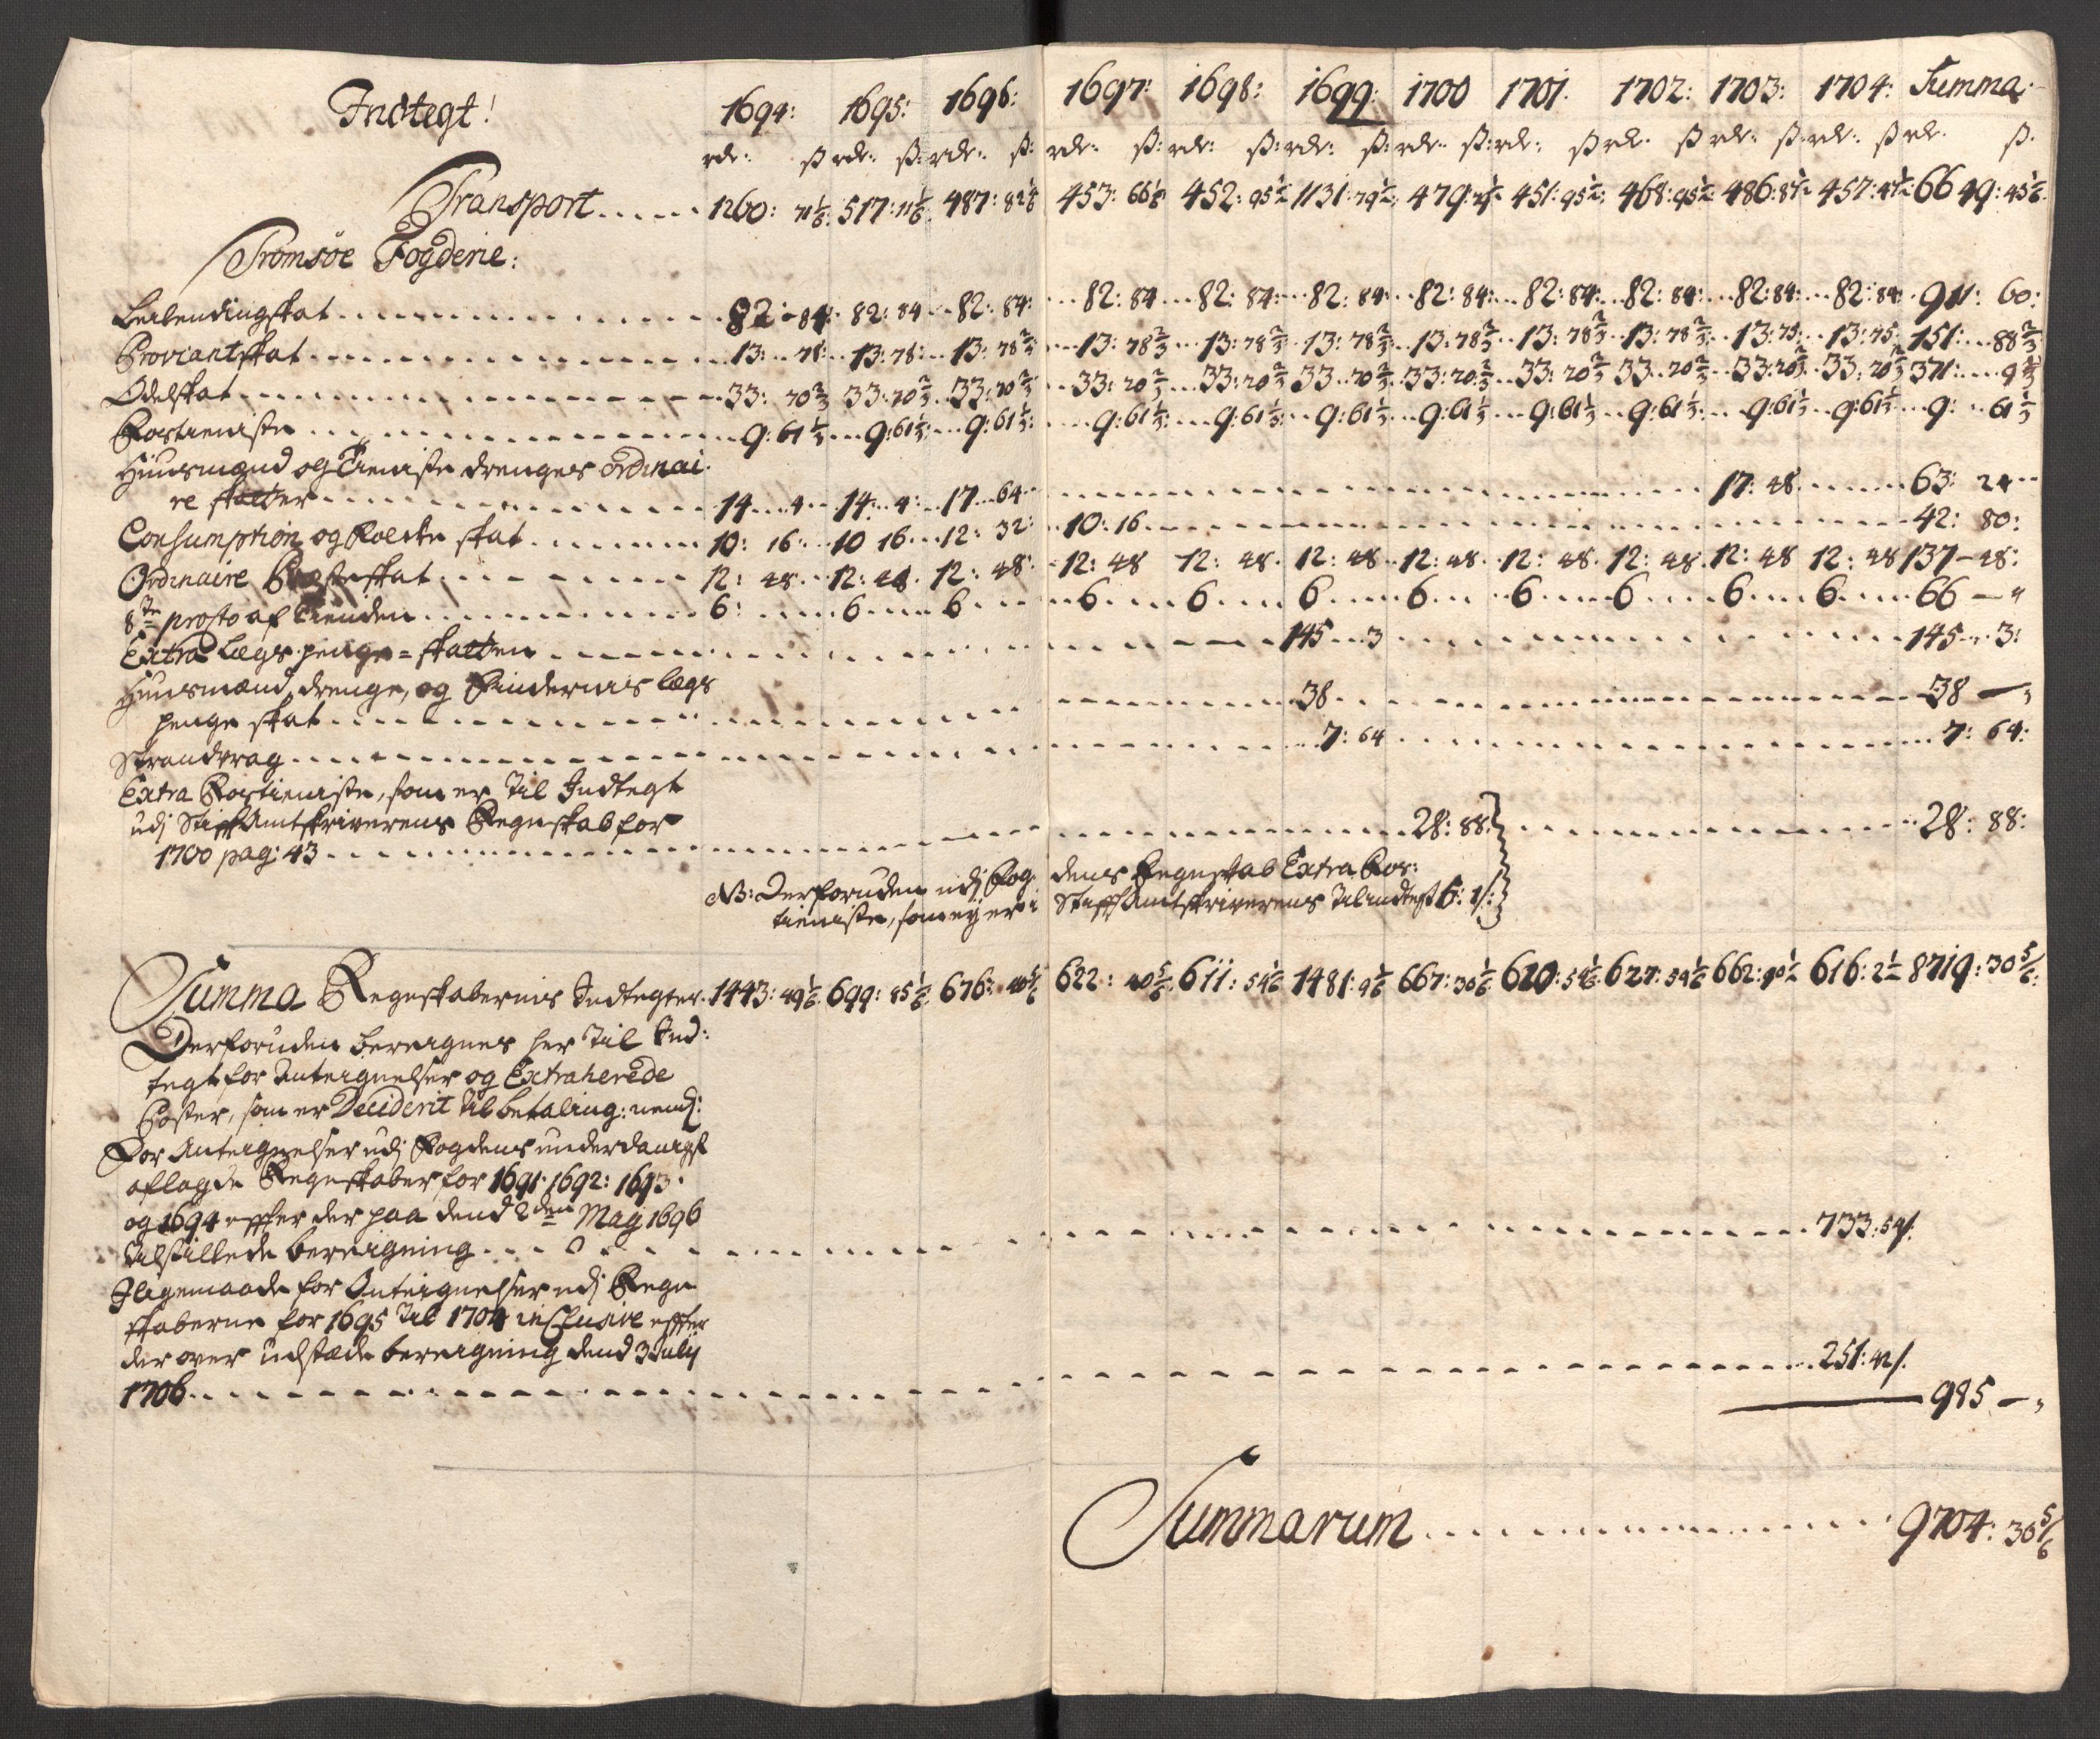 Indtegt! 1694: 1695: 1696: 1697: 1698: 1699: 1700 1701. 1702: 1703: 1704: Summa:
rdr: ß rdr: ß: rdr: ß: rdr: ß: rdr: ß: rdr: ß: rdr: ß: rdr: ß rdr. ß rdr: ß: rdr: ß rdr. ß.
Transport 1260: 71 1/6: 517: 11 1/6 487: 82 1/6 453: 66 1/6 452: 95 1/2 1131: 79 1/2 479: 451: 95 1/2: 468: 95 1/2 486: 8 1/2 457: 4 1/2: 6649: 45 1/6.
Tromsöe Fogderie:
Leilendingskat 82: 84: 82: 84 82: 84: 82: 84 82: 84: 82: 84: 82: 84: 82: 84: 82: 84: 82: 84: 82: 84 911: 60:
Proviantskat 13: 78: 13: 78: 13: 78 2/3 13: 78 2/3 13: 78 2/3 13: 78 2/3 13: 78 2/3 13: 78 2/3 13: 78 2/3 13: 75: 13: 75 151: 88 2/3
Odelskat 33: 70 2/3 33: 70 2/3 33: 70 2/3 33: 70 2/3 33: 70 2/3 33: 70 2/3 33: 70 2/3 33: 70 2/3 33: 70 2/3 33: 70 2/3 33: 70 2/3 371: 9 1/3
Rostieniste 9: 61 1/3 9: 61 1/3: 9: 61 1/3: 9: 61 1/3: 9: 61 1/3: 9: 61 1/3 9: 61 1/3 9: 61 1/3 9: 61 1/3: 9: 61 1/3 9: 61 1/3 9: 61 1/3
Huusmænd og Tieniste drenges ordinai
re skatter 14 4 14: 4: 17 64 17: 48 63: 24
Consumption og Folcke skat 10: 16: 10 16 12: 32: 10: 16 42: 80:
Ordinaire Præsteskat 12: 48 12: 48. 12: 48: 12: 48 12: 48. 12: 48 12: 48 12: 48. 12: 48. 12: 48 12: 48 137 - 48:
8te prosto af tienden 6: 6 6 6 6 6 6 6 6 6 6 66 - "
Extra Lægs penge = skatten 145 3 145 3:
Huusmænd, drenge, og Lægs
penge skat 38 38 - "
Strandvrag 7: 64 7: 64:
Extra Rostieniste, som er til Indtegt
udj Stiftamtskriverens Regnskab for
1700 pag: 43 28: 88: 28: 88:
NB: Derforuden udj Fog dens Regnskab Extra Ros:
tieniste, som ej er i Stiftamtskriverens til indtegt 6: 1/:
Summa Regnskabernis Indtegter 1443: 49 1/6 699: 85 1/2 676: 40 5/6 622: 40 5/6 611: 54 1/6 1481: 9 1/6 667: 30 1/2 620: 54 1/6 627: 54 1/6 662: 616: 2 1/2 8719: 30 5/6:
Derforuden bereignes her til Ind:
tegt for Anteignelser og Extraherede
Poster, som er Deciderit til betaling: neml:
For Anteignelser udj Fogdens underdanigst
aflagde Regnskaber for 1691. 1692: 1693.
og 1694 effter der paa dend 2den Maij 1696
tilstillede bereigning 733: 54/:
Iligemaade for Anteignelser udj Regn
skaberne for 1695 til 1704 inclusive effter
der over udstæde bereigning dend 3 Julij
1706 251: 42/.
985 - "
Summarum 9704: 30 5/6